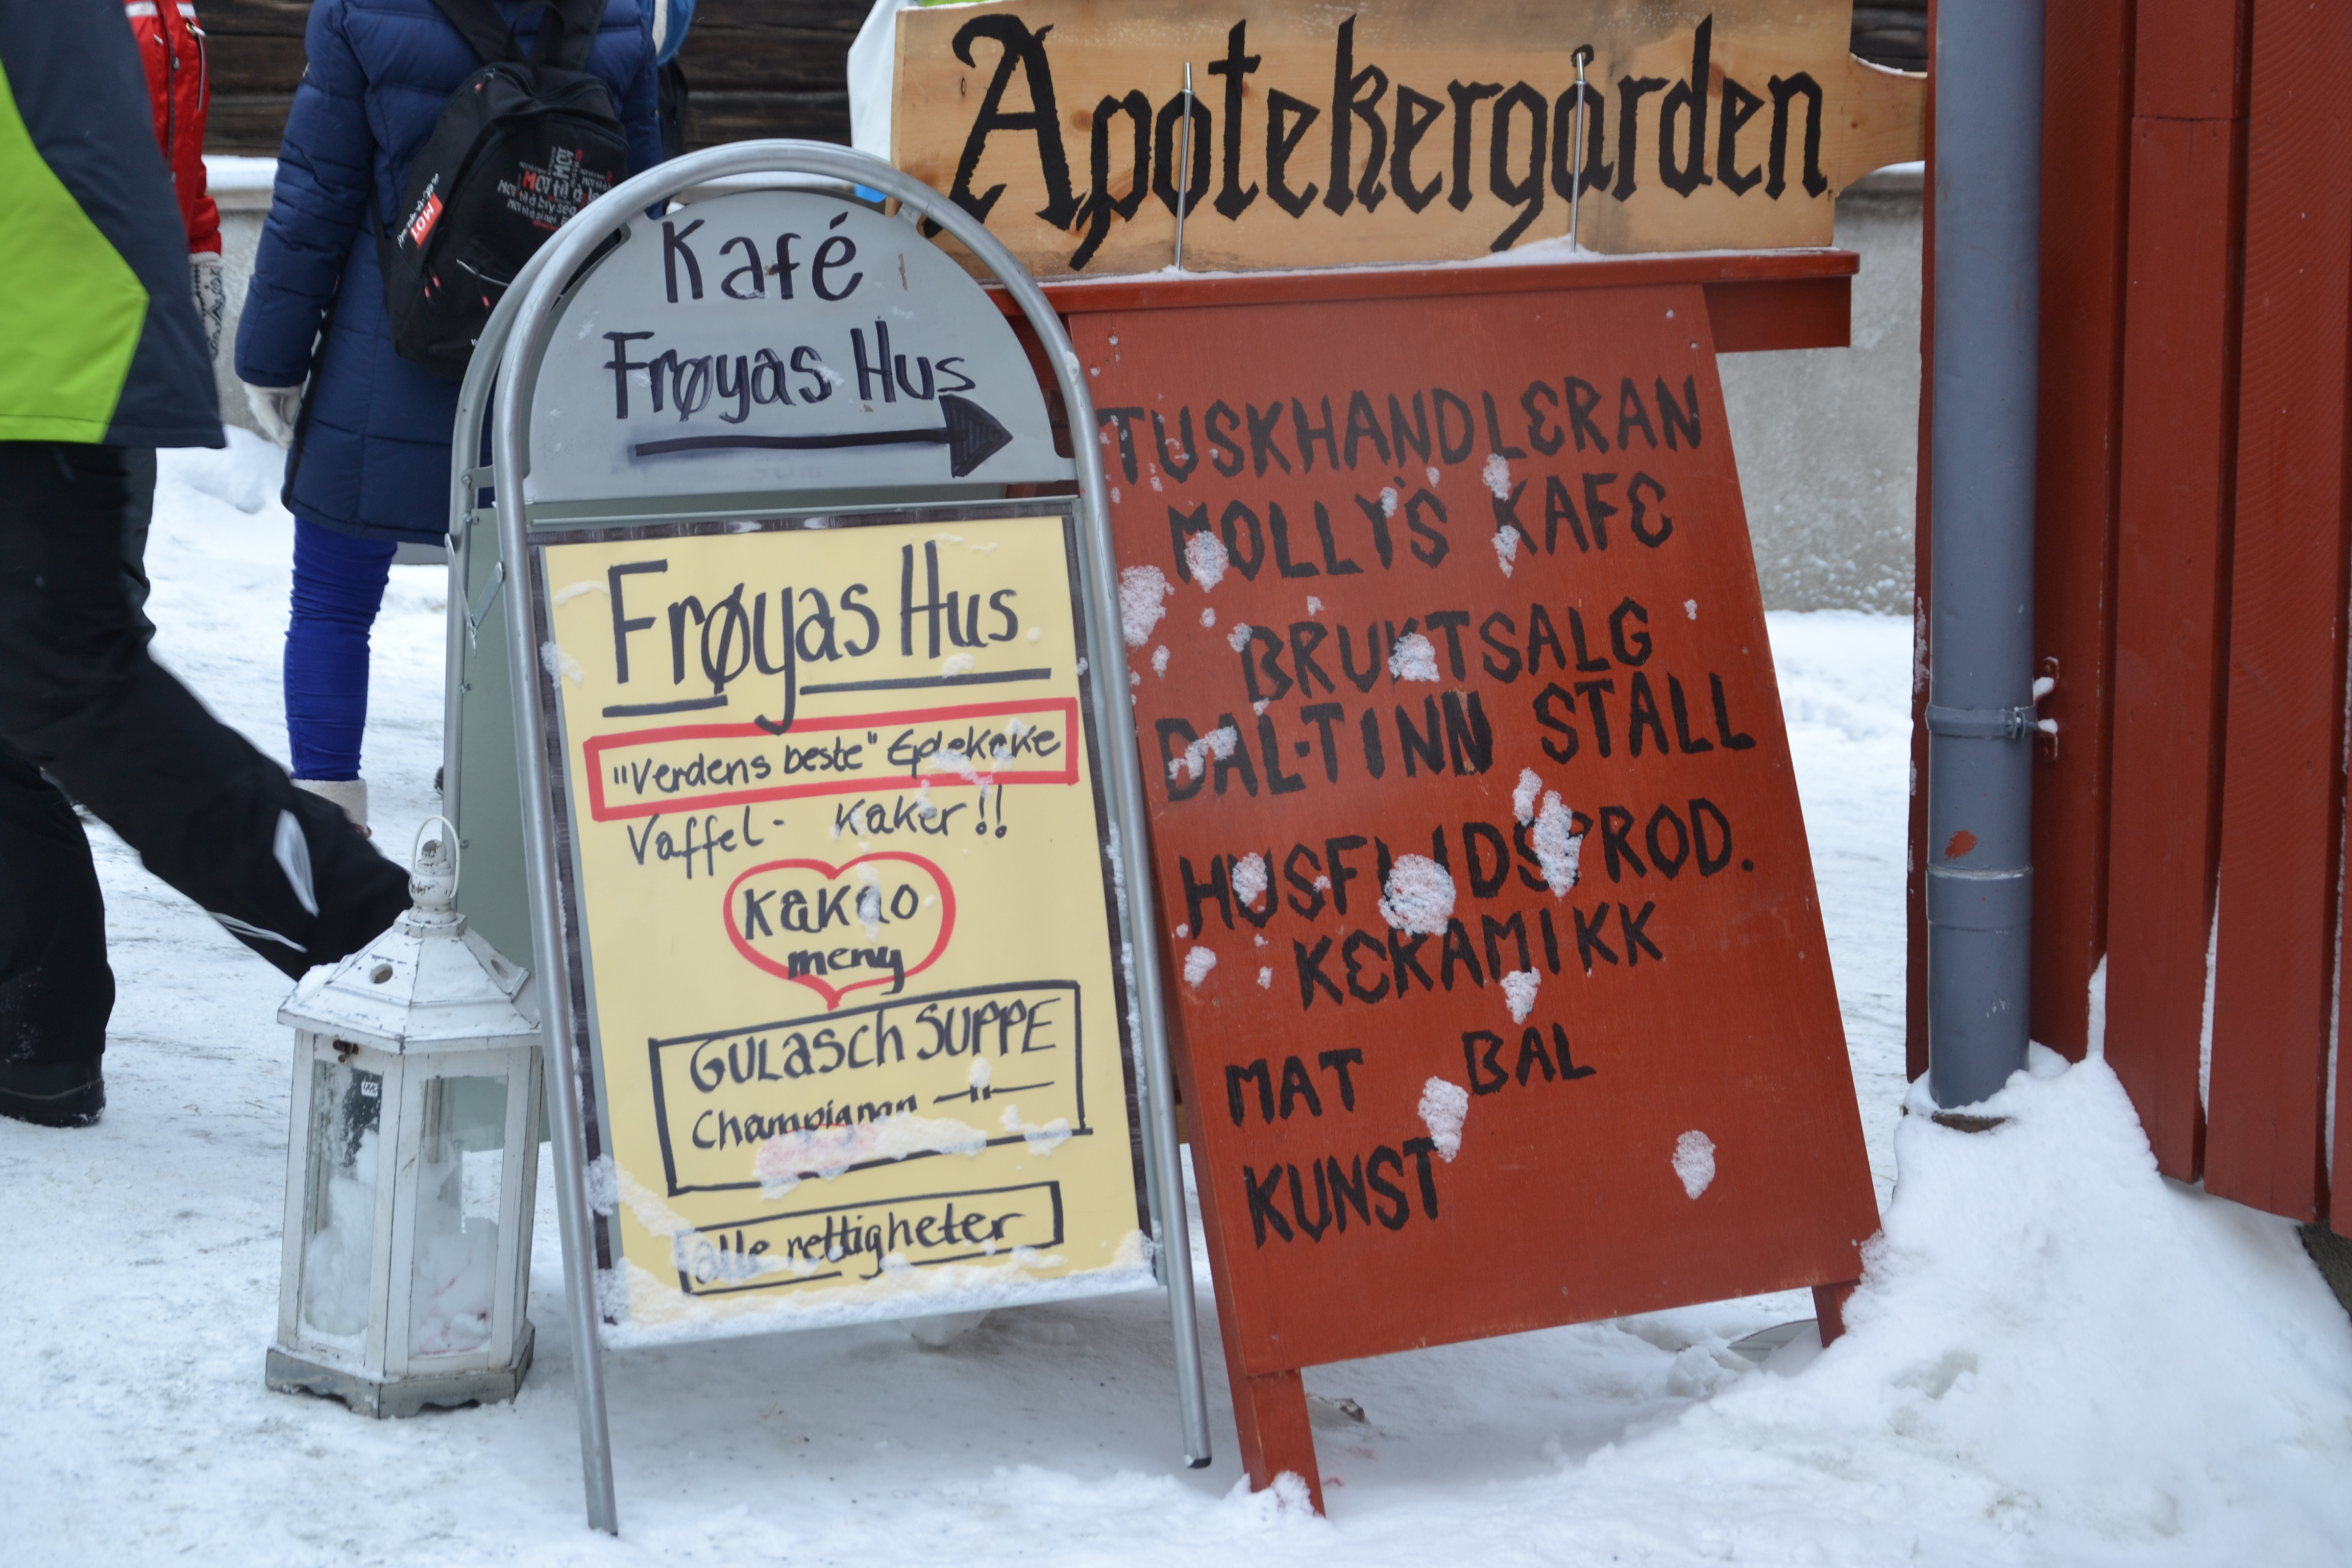 Apotekergården
Kafé
Frøyas Hus
Frøyas Hus
"Verdens beste" Eplekake
Vaffel- Kaker!!
Kakao
meny
GULasch SUPPE
Champignon —"—
alle rettigheter
TUSKHANDLERAN
MOLLY'S KAFE
BRUKTSALG
DAL-TINN STALL
HUSFLIDSPROD.
KERAMIKK
MAT BAL
KUNST
MOT